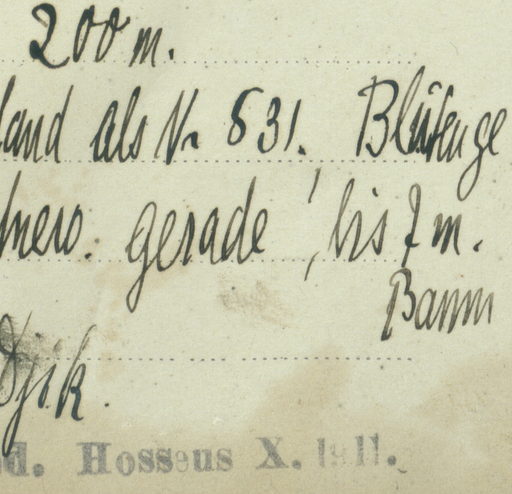 200 m.
land als Nr 631. Blütenge
gerade, bis 7 m.
Baum
Djik.
d. Hosseus X. 1911.